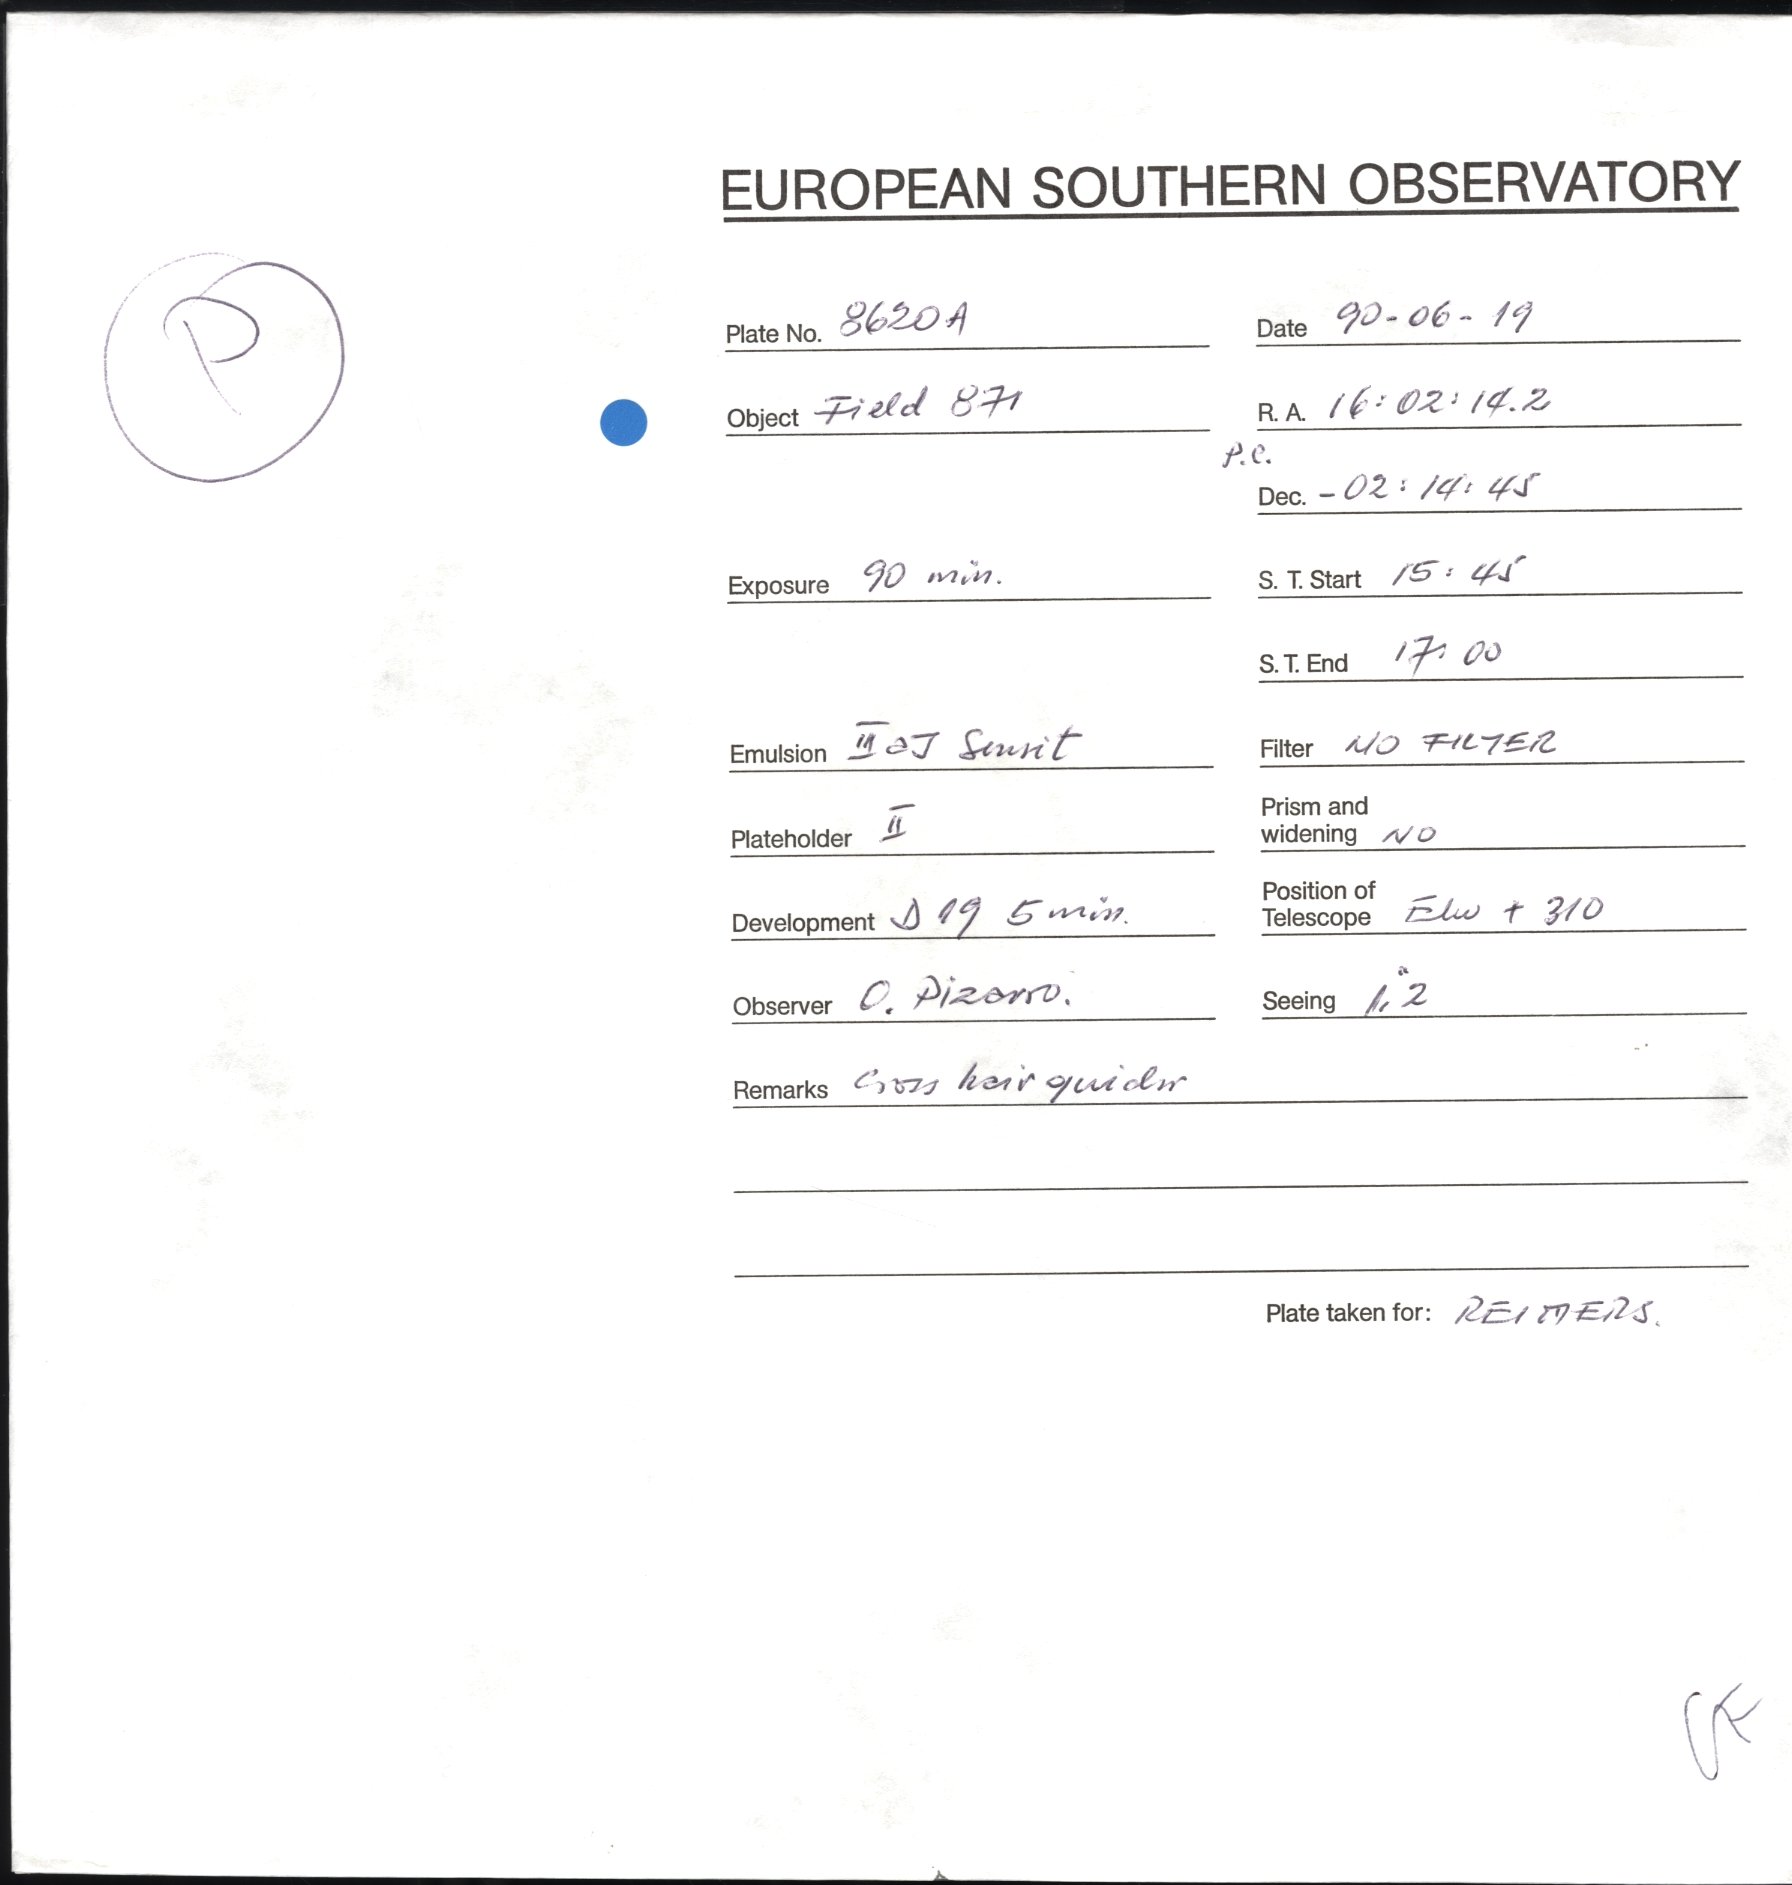 EUROPEAN SOUTHERN OBSERVATORY
P
Plate No. 8620A
Date 90-06-19
Object Field 871
R. A. 16:02:14.2
P.C.
Dec. -02:14:45
Exposure 90 min.
S. T. Start 15:45
S. T. End 17:00
Emulsion III aJ Sensit
Filter NO FILTER
Plateholder II
Prism and
widening NO
Development D 19 5 min.
Position of
Telescope + 310
Observer O. Pizarro.
Seeing 1."2
Remarks Cross hair guider
Plate taken for: REIMERS.